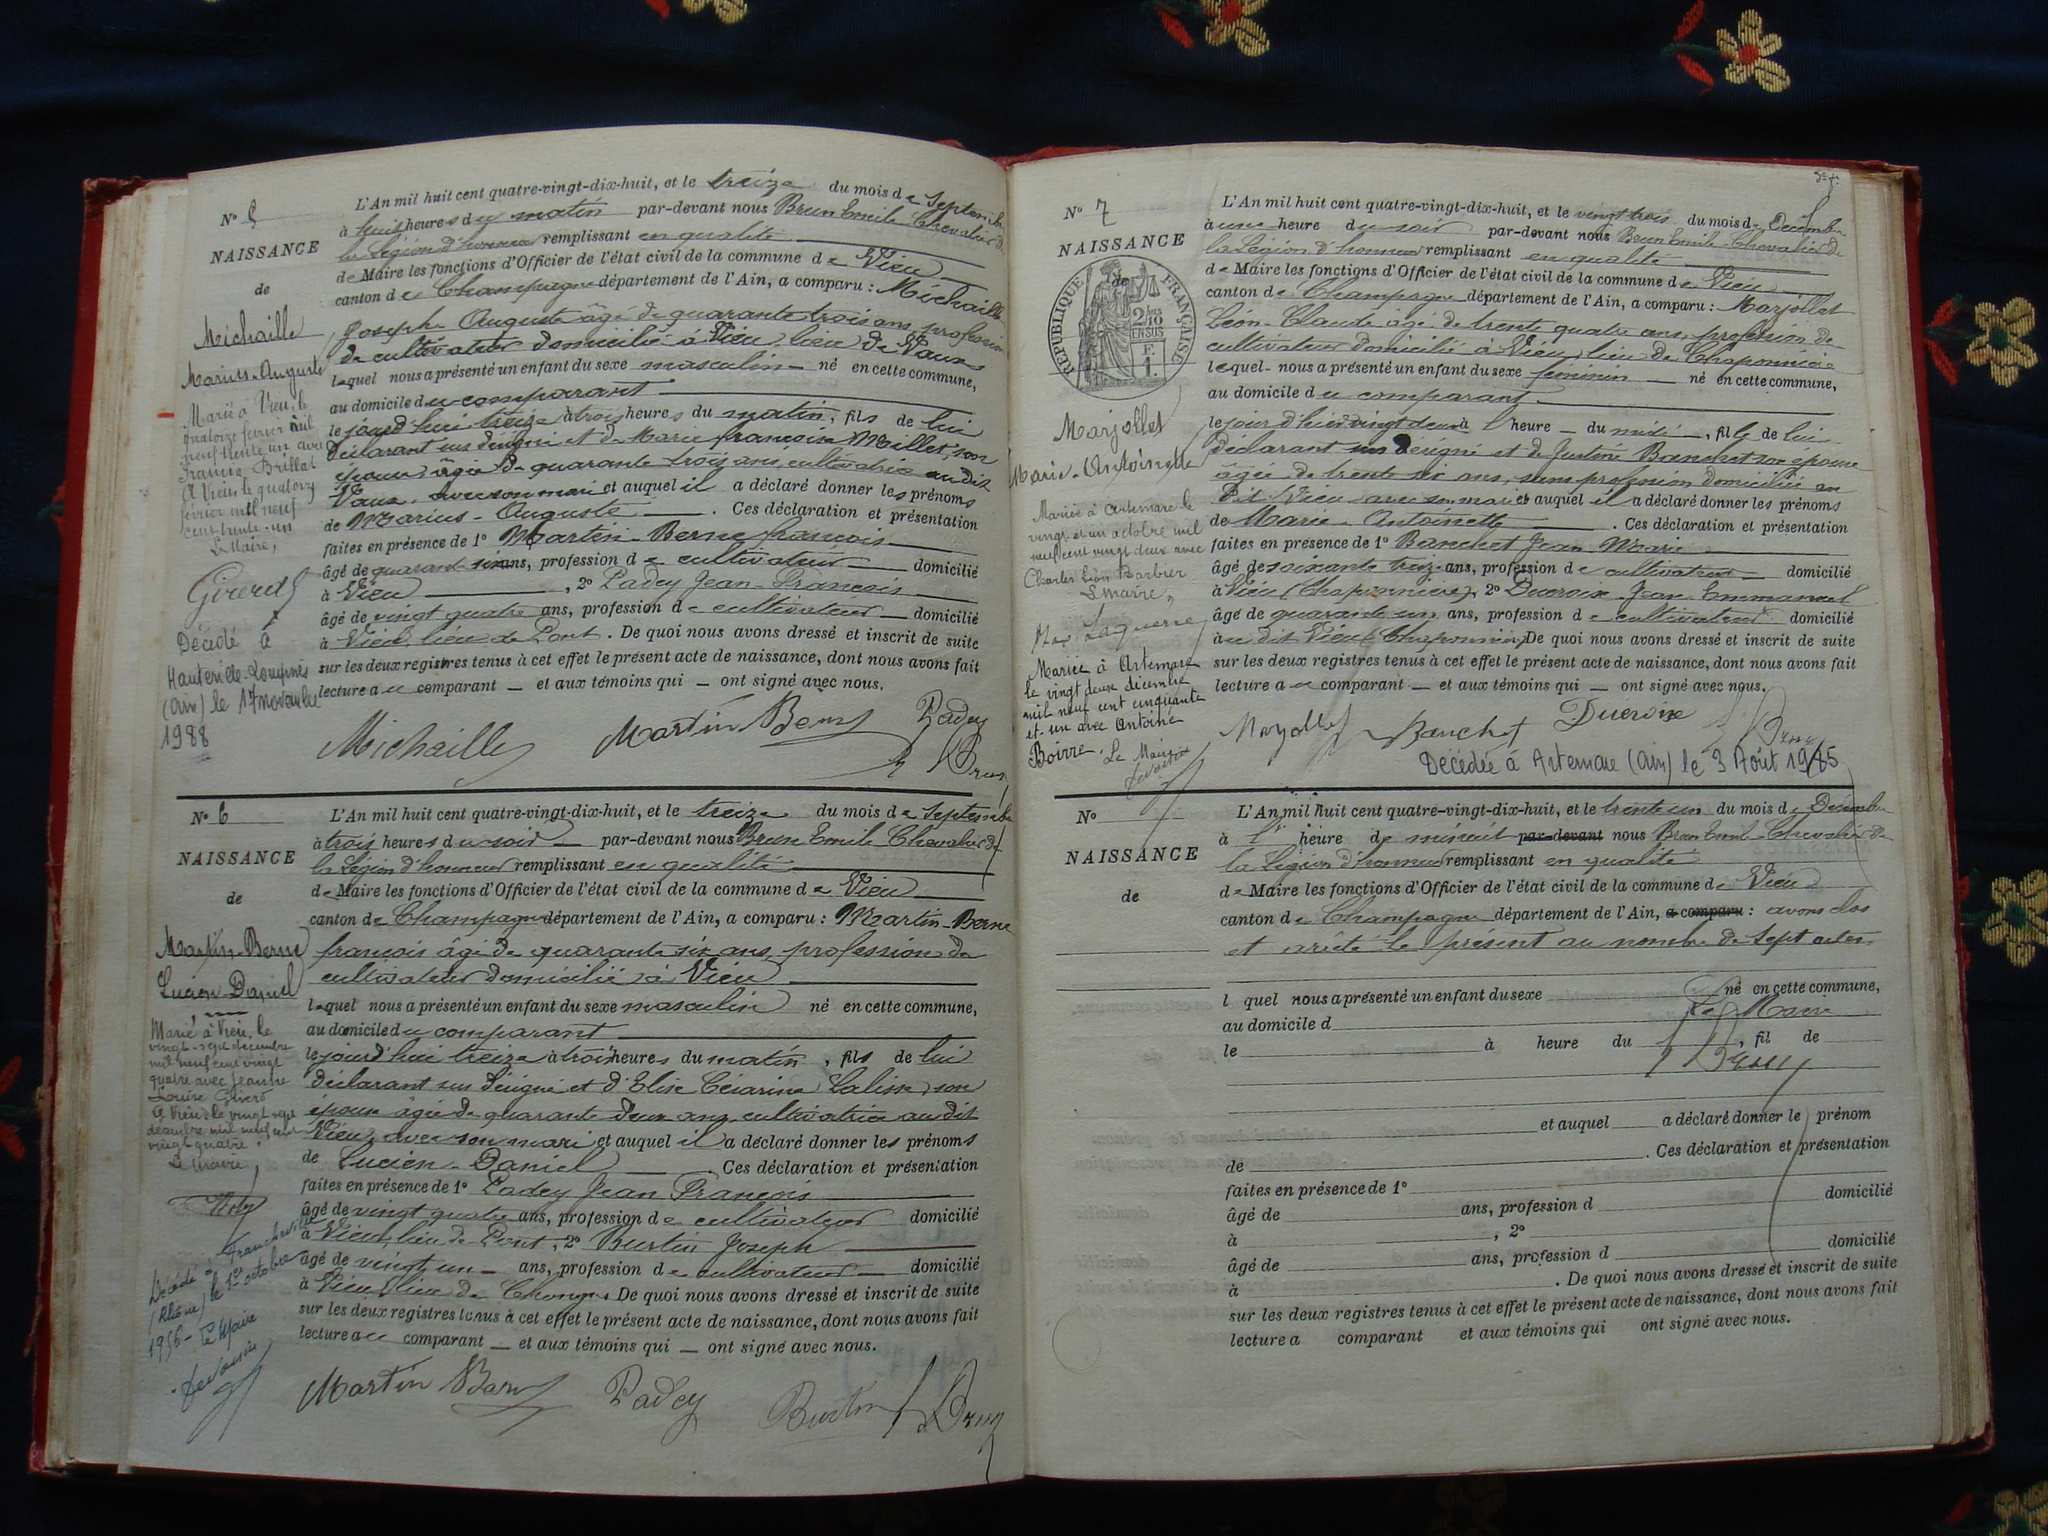 N° 5
NAISSANCE
de
Michaille
Marius-Auguste
Marié à Vieu, le
quatorze février mil
neuf trente un avec
Francia Brillat
A Vieu, le quatorze
février mil neuf
cent trente-un
Le Maire,
Décédé à
Hauteville-Lompnes
(Ain) le 17 novembre
1988
L'An mil huit cent quatre-vingt-dix-huit, et le treize du mois de Septembre
à huit heures du matin par-devant nous Brun Emile Chevalier de
la Légion d'honneur remplissant en qualité
de Maire les fonctions d'Officier de l'état civil de la commune de Vieu
canton de Champagne département de l'Ain, a comparu : Michaille
Joseph Auguste âgé de quarante trois ans, profession
de cultivateur domicilié à Vieu, lieu de Vaux
lequel nous a présenté un enfant du sexe masculin né en cette commune,
au domicile du comparant
le jourd'hui treize à trois heures du matin, fils de lui
déclarant sus désigné et de Marie françoise Millet, son
épouse âgée de quarante trois ans, cultivatrice au dit
Vaux avec son mari et auquel il a déclaré donner les prénoms
de Marius-Auguste. Ces déclaration et présentation
faites en présence de 1° Martin-Berne françois
âgé de quarante six ans, profession de cultivateur domicilié
à Vieu, 2° Padey Jean-François
âgé de vingt quatre ans, profession de cultivateur domicilié
à Vieu, lieu de Pont. De quoi nous avons dressé et inscrit de suite
sur les deux registres tenus à cet effet le présent acte de naissance, dont nous avons fait
lecture au comparant et aux témoins qui ont signé avec nous.
Michaille Martin Berne Padey
Brun
N° 6
NAISSANCE
de
Martin-Berne
Lucien-Daniel
Marié à Vieu, le
vingt-sept décembre
mil neuf cent vingt
quatre avec Jeanne
Louise
A Vieu, le vingt sept
décembre mil neuf cent
vingt quatre.
Le Maire,
Décédé à Francheville
(Rhône) le 1er octobre
1956 - Le Maire
L'An mil huit cent quatre-vingt-dix-huit, et le treize du mois de Septembre
à trois heures du soir par-devant nous Brun Emile Chevalier de
la Légion d'honneur remplissant en qualité
de Maire les fonctions d'Officier de l'état civil de la commune de Vieu
canton de Champagne département de l'Ain, a comparu : Martin-Berne
françois âgé de quarante six ans, profession de
cultivateur domicilié à Vieu
lequel nous a présenté un enfant du sexe masculin né en cette commune,
au domicile du comparant
le jourd'hui treize à trois heures du matin, fils de lui
déclarant sus désigné et d'Elise Césarine Lalisse, son
épouse âgée de quarante deux ans, cultivatrice au dit
Vieu, avec son mari et auquel il a déclaré donner les prénoms
de Lucien-Daniel. Ces déclaration et présentation
faites en présence de 1° Padey Jean François
âgé de vingt quatre ans, profession de cultivateur domicilié
à Vieu, lieu de Pont, 2° Burtin Joseph
âgé de vingt un ans, profession de cultivateur domicilié
à Vieu lieu de. De quoi nous avons dressé et inscrit de suite
sur les deux registres tenus à cet effet le présent acte de naissance, dont nous avons fait
lecture au comparant et aux témoins qui ont signé avec nous.
Martin Berne Padey Burtin Brun
N° 7
NAISSANCE
de
RÉPUBLIQUE FRANÇAISE
2/10 EN SUS
Marjollet
Marie-Antoinette
Mariée à Artemare le
vingt et un octobre mil
neuf cent vingt deux avec
Charles Léon Barbier
Mariée à Artemare
le vingt deux décembre
mil neuf cent cinquante
et un avec Antoine
Boirre. Le Maire
L'An mil huit cent quatre-vingt-dix-huit, et le vingt trois du mois de Décembre
à une heure du soir par-devant nous Brun Emile Chevalier de
la Légion d'honneur remplissant en qualité
de Maire les fonctions d'Officier de l'état civil de la commune de Vieu
canton de Champagne département de l'Ain, a comparu : Marjollet
Léon-Claude âgé de trente quatre ans, profession de
cultivateur domicilié à Vieu, lieu de Chaponnière
lequel nous a présenté un enfant du sexe féminin né en cette commune,
au domicile du comparant
le jour d'hier vingt deux à 1 heure du, fille de lui
déclarant sus désigné et de Justine Banchet son épouse
âgée de trente six ans, sans profession domiciliée au
dit Vieu avec son mari et auquel il a déclaré donner les prénoms
de Marie-Antoinette. Ces déclaration et présentation
faites en présence de 1° Banchet Jean Marie
âgé de soixante treize ans, profession de cultivateur domicilié
à Vieu (Chaponnière), 2° Ducroix Jean Emmanuel
âgé de quarante un ans, profession de cultivateur domicilié
au dit Vieu (Chaponnière) De quoi nous avons dressé et inscrit de suite
sur les deux registres tenus à cet effet le présent acte de naissance, dont nous avons fait
lecture au comparant et aux témoins qui ont signé avec nous.
Marjollet Banchet Ducroix Brun
Décédée à Artemare (Ain) le 3 Août 1985
N°
NAISSANCE
de
L'An mil huit cent quatre-vingt-dix-huit, et le trente un du mois de Décembre
à l' heure de minuit par-devant nous Brun Emile Chevalier de
la Légion d'honneur remplissant en qualité
de Maire les fonctions d'Officier de l'état civil de la commune de Vieu
canton de Champagne département de l'Ain, a comparu : avons clos
et arrêté le présent au nombre de sept actes
l quel nous a présenté un enfant du sexe né en cette commune,
au domicile d Le Maire
le à heure du , fil de
Brun
et auquel a déclaré donner le prénom
de . Ces déclaration et présentation
faites en présence de 1°
âgé de ans, profession d domicilié
à , 2°
âgé de ans, profession d domicilié
à . De quoi nous avons dressé et inscrit de suite
sur les deux registres tenus à cet effet le présent acte de naissance, dont nous avons fait
lecture a comparant et aux témoins qui ont signé avec nous.